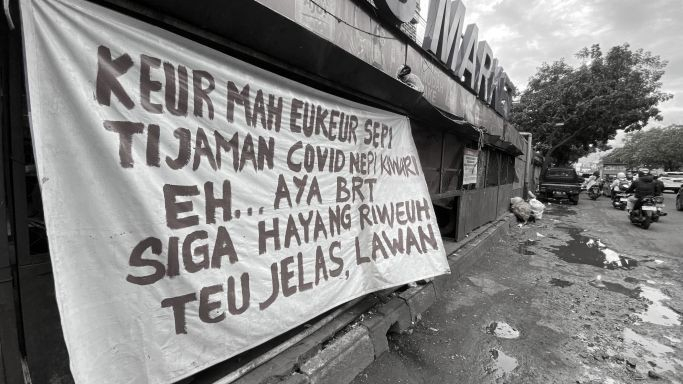 MARKET
KEUR MAH EUKEUR SEPI
TIJAMAN COVID NEPI KIWARI
EH... AYA BRT
SIGA HAYANG RIWEUH
TEU JELAS, LAWAN